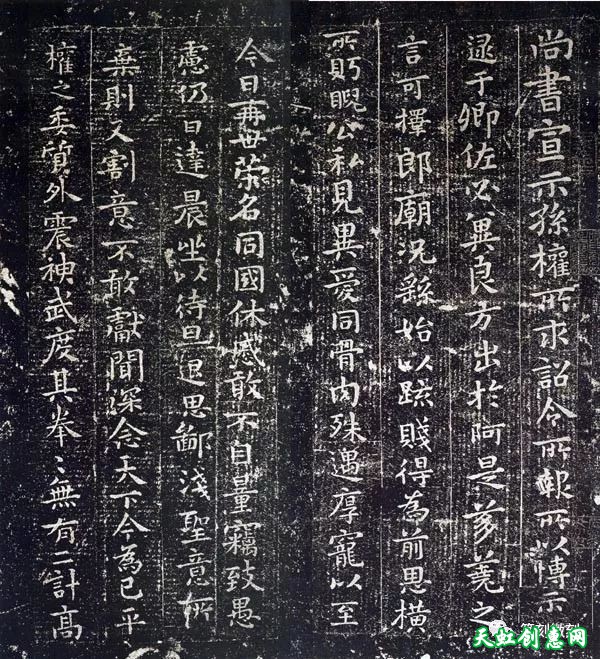 尚書宣示孫權所求詔令所報所以博示
逮于卿佐必冀良方出於阿是芻蕘之
言可擇郎廟況繇始以疏賤得為前恩橫
所眖睨公私見異愛同骨肉殊遇厚寵以至
今日再世榮名同國休慼敢不自量竊致愚
慮仍日達晨坐以待旦退思鄙淺聖意所
棄則又割意不敢獻聞深念天下今為已平
權之委質外震神武度其拳〻無有二計高
天虹创惠网